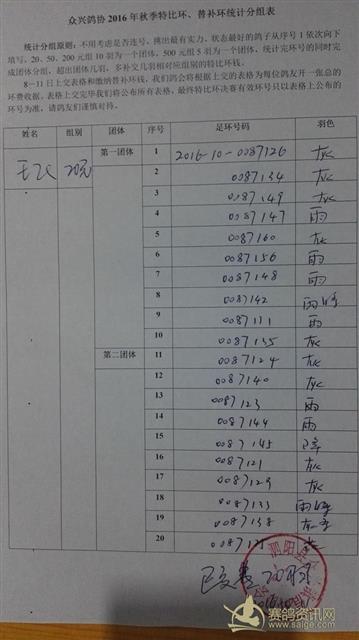 众兴鸽协 2016 年秋季特比环、替补环统计分组表
统计分组原则：不用考虑是否连号，挑出最有实力，状态最好的鸽子从序号 1 依次向下
填写，20、50、200 元组 10 羽为一个团体，500 元组 5 羽为一个团体，统计完环号的同时完
成团体分组，超出团体几羽，多补交几羽相对应组别的特比环钱。
8－11 日上交表格和缴纳替补环钱，我们鸽会将根据上交的表格为每位鸽友开一张总的
环费收据。表格上交完毕我们将公布所有表格，最终特比环决赛有效环号只以表格上公布的
环号为准，请鸽友们谨慎对待。
姓名 组别 团体 序号 足环号码 羽色
20元 第一团体 1 2016-10-0087126 灰
2 0087134 灰
3 0087149 灰
4 0087147 雨
5 0087160 灰
6 0087156 雨
7 0087148 雨
8 0087142 雨
9 0087111 雨
10 0087135 灰
第二团体 11 0087124 灰
12 0087140 灰
13 0087123 雨
14 0087144 雨
15 0087145
16 0087121 灰
17 0087129 灰
18 0087133 雨
19 0087138 灰
20
赛鸽资讯网
www.saige.com